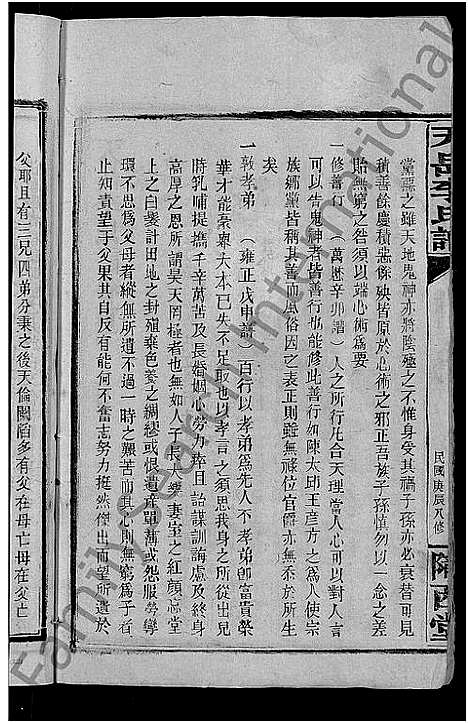 天岳李氏譜
民國庚辰八修
隴西堂
黨惡之雖天地鬼神亦將陰殛之不惟身受其禍子孫亦必衰替可見
積善餘慶積惡餘殃皆原於心術之邪正吾族子孫慎勿以一念之差
貽無窮之咎須以端心術為要
一修善行 (萬歷辛卯譜) 人之所行凡合天理當人心可以對人言
可以告鬼神者皆善行也能修此善行如陳太邱王彦方之為人使宗
族鄉黨皆稱其善而風俗因之表正則雖無祿位官爵亦無忝於所生
矣
一敦孝弟 (雍正戊申譜) 百行以孝弟為先人不孝弟卽富貴榮
華才能豪
大本已失不足取也以孝言之須思我身之所從出兒
時乳哺提攜千辛萬苦及長婚姻心勞力瘁且詒謀訓誨處及終身
高厚之恩所謂昊天罔極者也無如人子長大
妻室之紅顏忘堂
上之白髮計田地之封殖棄色養之綢繆或恨遺產單薄或怨服勞學
環不思為父母者縱無所遺不過一時之艱苦而其心則無窮為子者
止知責望于父果其自反有能何不奮志努力挺然傑出而望所遺於
父耶且有三兄四弟分爨之後天倫闊
多有父在母亡母在父亡
Family Search International